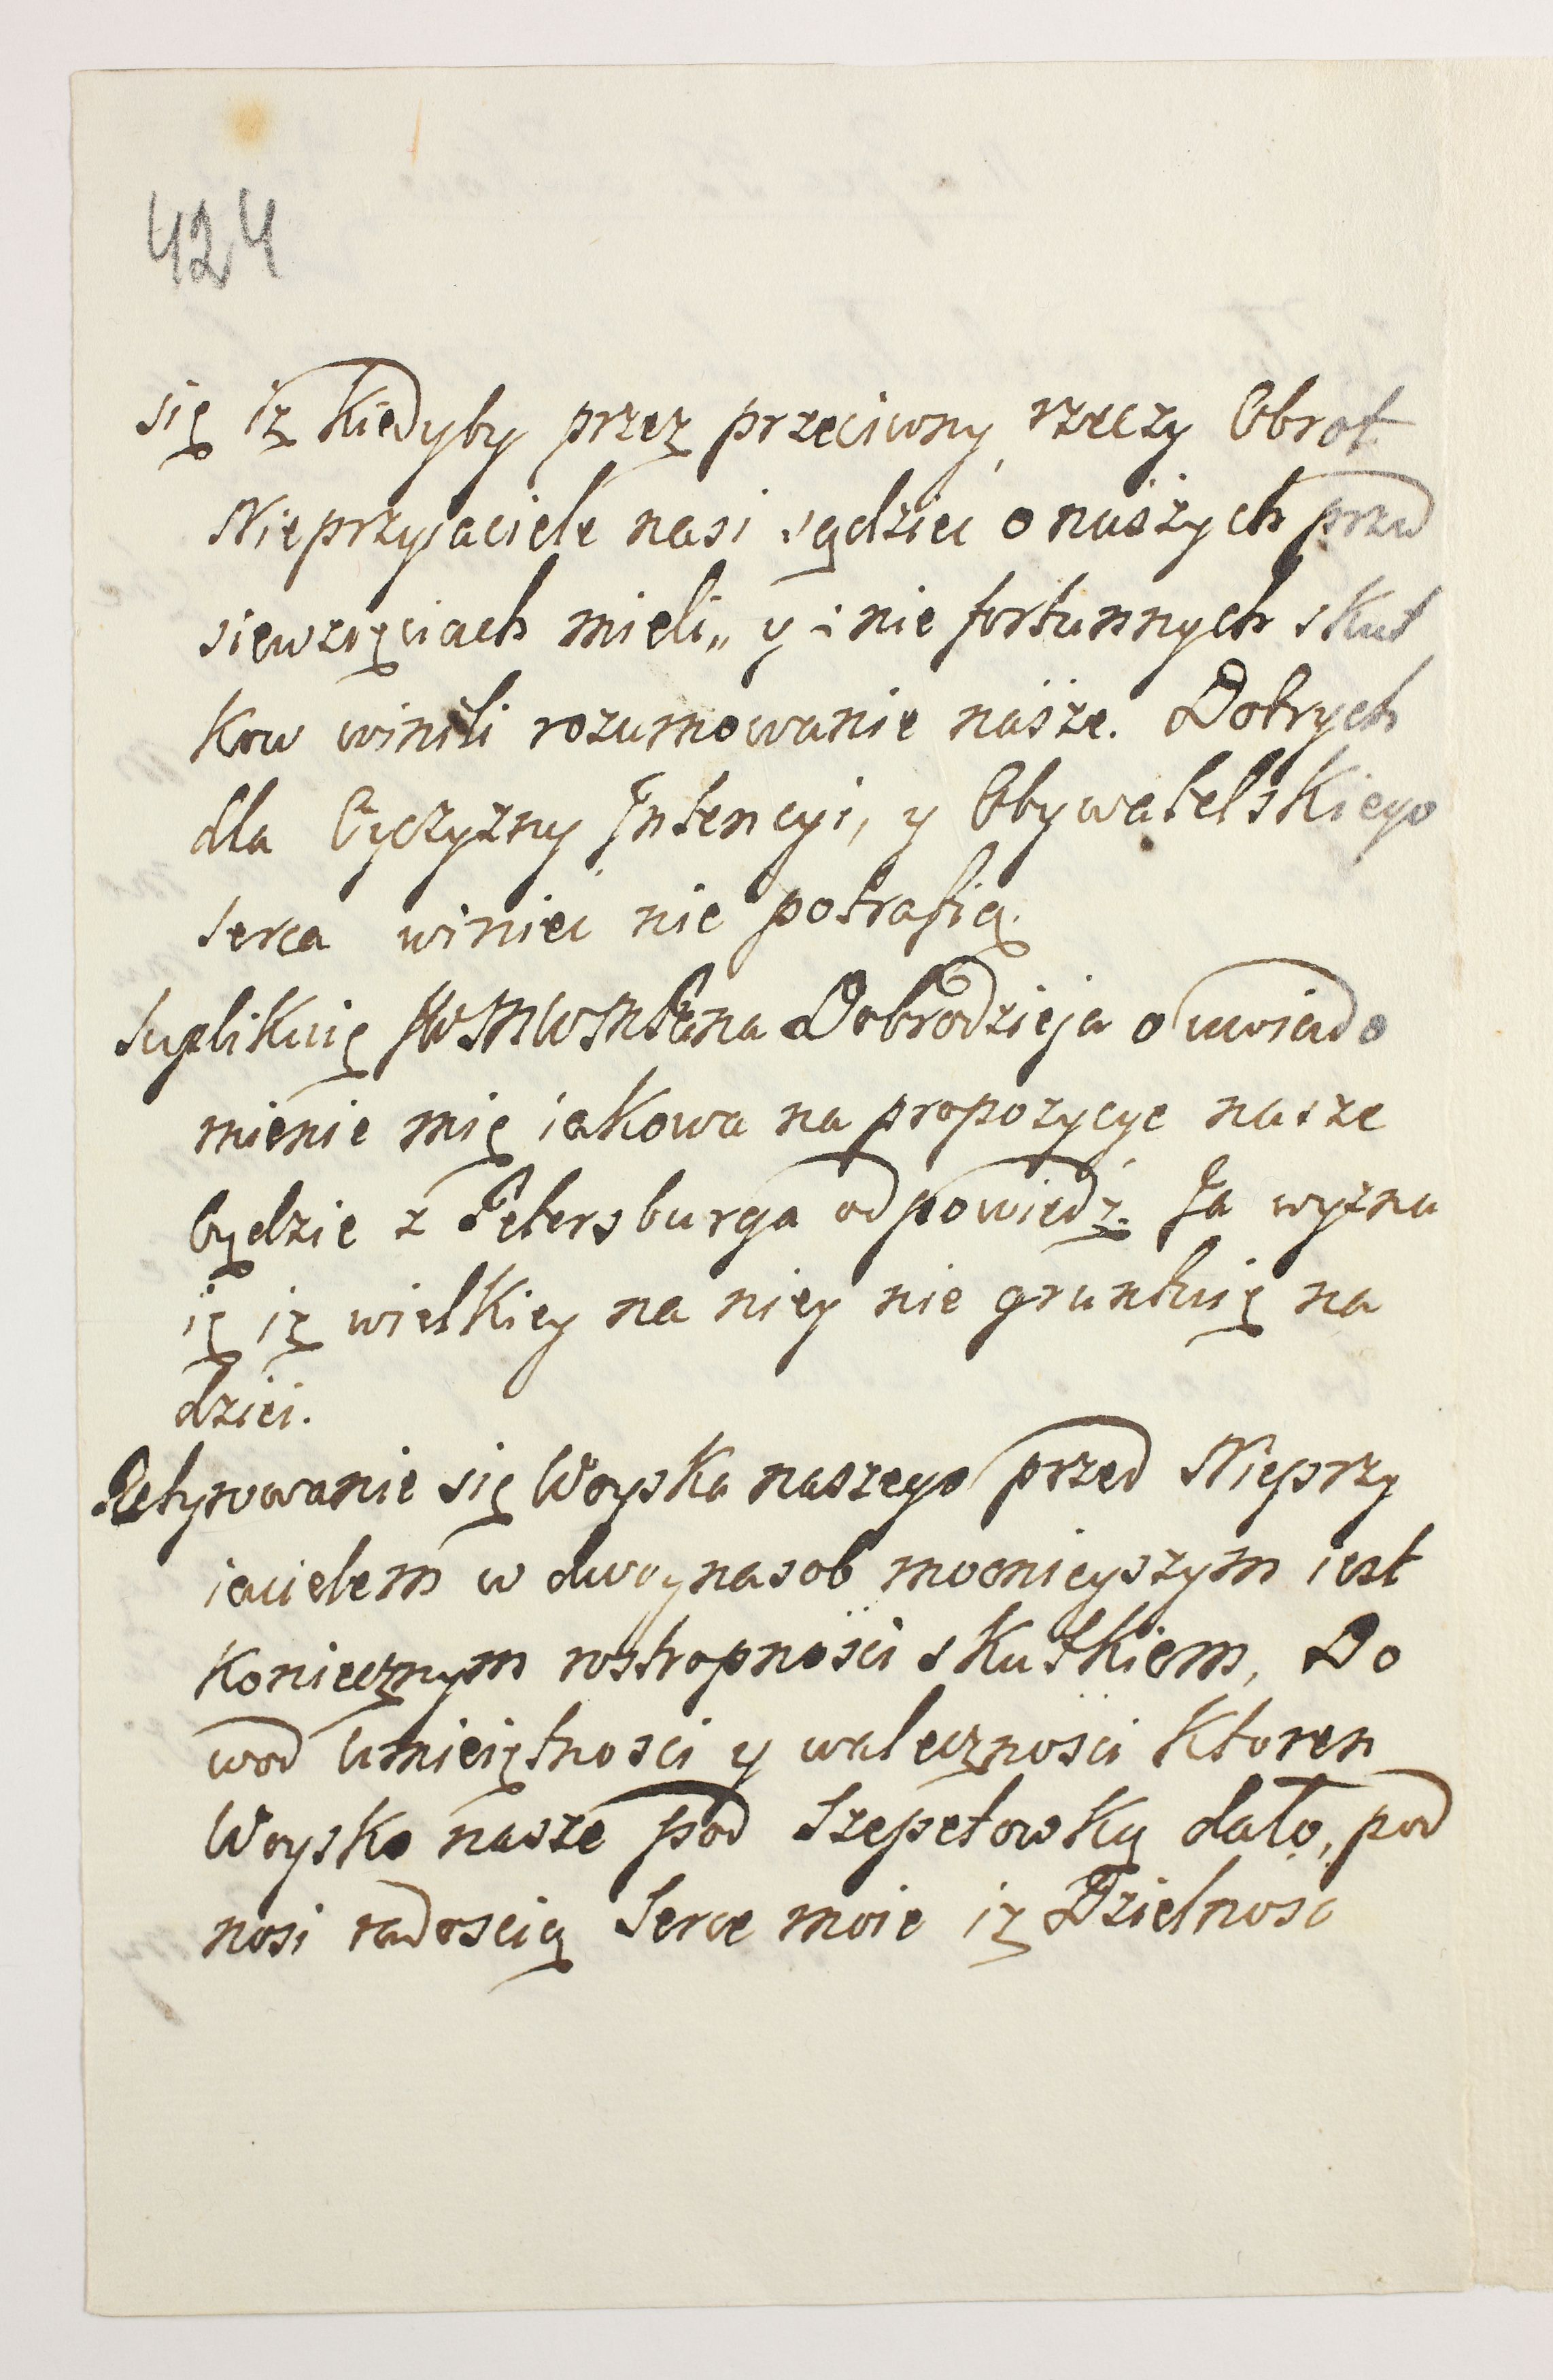 424
się iż Kiedyby przez przeciwny rzeczy Obrot
Nieprzyjaciele nasi sądzieć o naszych przed
siewzięciach mieli„ y z nie fortunnych skut
Kow winili rozumowanie nasze. Dobrych
dla Oyczyzny Intencyi, y Obywatelskiego
serca winieć nie potrafią.
Suplikuię JWMWM Pana Dobrodzieja o uwiado
mienie mię iakowa na propozycye nasze
będzie z Petersburga odpowiedź. Ja wyzna
ię iż wielkiey na niey nie gruntuię na
dziei.
Retyrowanie się Woyska naszego przed Nieprzy
iacielem w dwoynasob mocnieyszym iest
Koniecznym rostropności skutkiem, Do
wod Umieiętności y waleczności Ktoren
Woysko nasze pod Szepetowką dało, pod
nosi radością Serce moie iż Dzielność